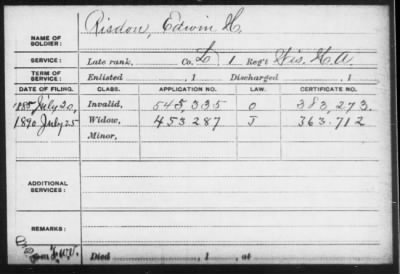 NAME OF SOLDIER: Risdon, Edwin H.
SERVICE: Late rank, Co. L 1 Reg't Wis. H.A.
TERM OF SERVICE: Enlisted , 1 Discharged , 1
DATE OF FILING. CLASS. APPLICATION NO. LAW. CERTIFICATE NO.
1885 July 20, Invalid, 545335 O 383,273.
1890 July 25 Widow, 453287 J 363.712
Minor,
ADDITIONAL SERVICES:
REMARKS:
Died , 1 , at